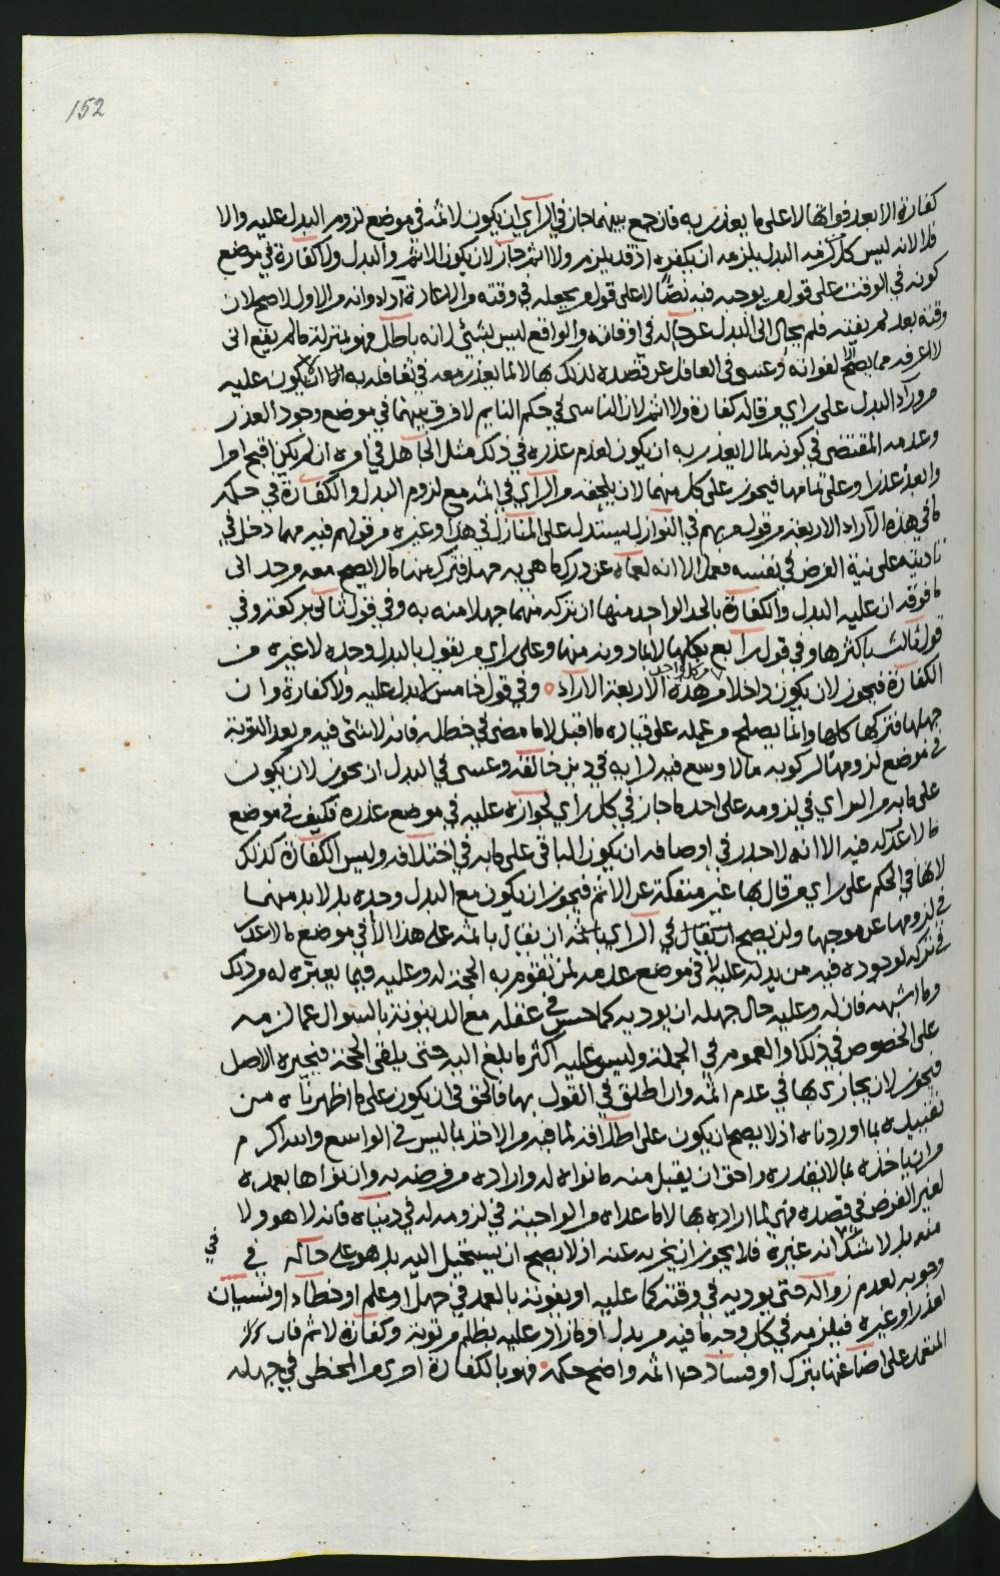 152
كفارة الا بعد فواتها لا على ما يعذر به فان جمع بينهما جاز في الرآي ان يكون لاثمه في موضع لزوم البدل عليه والا
فلا لانه ليس كل من لزمه البدل يلزمه ان يكفره اذ قد يلزم ولا اثم جاز لان يكون الاثم والبدل ولا كفارة في موضع
كونه في الوقت على قول من يوجبه فيه نصا لا على قول من يجعله في وقته من الاعادة آداء وانه من الاول لاصح لان
وقته بعد لم يفته فلم يحال الى البدل عن حاله في اوقاته والواقع ليس بشئ لانه باطل فهو بمنزلة ما لم يقع اني
لا اعرفه مما يصح الا لفواته وعسى في الغافل عن قصده لذلك بها لا لما يعذر معه في تغافله به الا ان يكون عليه
من ورآء البدل على راي من قاله كفارة ولا اثم لان الناسي في حكم النايم لا فرق بينهما في موضع وجود العذر
وعدمه المقتضى في كونه لما لا يعذر به ان يكون لعدم عذره في ذلك مثل الجاهل في امره ان لم يكن اقبح امرا
وابعد عذرا وعلى تمامها فيجوز على كل منهما لان يلحقه من الرآي في اثمه مع لزوم البدل والكفارة في حكمه
ما في هذه الآراء الاربعة من قول من يهم في النوازل ليستدل على المنازل في هذا وغيره من قولهم فيه مهما دخل في
تاديته على نية الفرض في نفسه فعمل الا انه لعماه عن درك ما هي به جهلا فترك منها ما لا يصح معه وجد الى
ما فوقه ان عليه البدل والكفارة بالحد الواحد منها ان تركه منهما جهلا منه به وفي قول ثاني بركعة وفي
قول ثالث باكثرها وفي قول رابع بكلها لا بما دونه منها وعلى راي من يقول بالبدل وحده لا غيره من
الكفارة فيجوز لان يكون داخلا من هذه الاربعة الاراء وفي قول خامس لا بدل عليه ولا كفارة وان
جهلها فتركها كلها وانما يصلح من عمله على قياده ما اقبل لا ما مضى في خطاله فانه لا شئ فيه من بعد التوبة
في موضع لزومها لركوبه ما لا وسع فيه لرابه في دين خالقه وعسى في البدل ان يجوز لان يكون
على ما به من الراي في لزومه على احد ما جاز في كل راي لجوازه عليه في موضع عذره فكيف في موضع
ما لا عذر له فيه الا انه لا حد ر في اوصافه ان يكون الباقي على ما به في اختلافه وليس الكفارة كذلك
لانها في الحكم على راي من قال بها غير منفكة عن الاثم فيجوز ان يكون مع البدل وحده بل لا بد منهما
في لزومها عن موجبها ولن يصح ان يقال في الراي باثمه ان يقال باثمه على هذا الا في موضع ما لا عذر
في تركه لوجوده فيه من يدله عليه لا في موضع عدمه لمن تقوم به الحجة له وعليه فيما يعبره له من ذلك
وما اشبهه فان له وعليه حال جهله ان يوديه كما حسن في عقله مع الدينونة بالسوال عما لزمه
على الخصوص في ذلك او العموم في الجملة وليس عليه اكثر ما بلغ اليه حتى يلقى الحجة فتخبره الاصل
فيجوز لان يجازى بها في عدم اثمه وان اطلق في القول بها فالحق في ان يكون على ما اظهرناه من
تقييده بما اوردناه اذ لا يصح ان يكون على اطلاقه لما فيه من الاخذ بما ليس في الواسع والله اكرم
من ان ياخذه بما لا يقدره واحق ان يقبل منه ما نواه له واراده من فرضه به وان نواها بعده
لغير الفرض في قصده فهي لما اراده بها لا ما عداه من الواجبة في لزومه له في دنياه فانه لا هو ولا
منه بل لا شك انه غيره فلا يجوز ان يجزيه عنه اذ لا يصح ان يستحيل اليه بل هو على حاله في
وجوبه لعدم زواله حتى يوديه في وقته كما عليه او يفوته بالعمد في جهل او علم او خطاء او نسيان
لعذر او غيره فيلزمه في كل وجه ما فيه من بدل او ما زاد عليه بظلم من توبة وكفارة لاثم فان
المتعمد على اضاعتها بترك او فساد جهرا اثمه واضح حكمه فهو بالكفارة احرى من المخطي في جهله